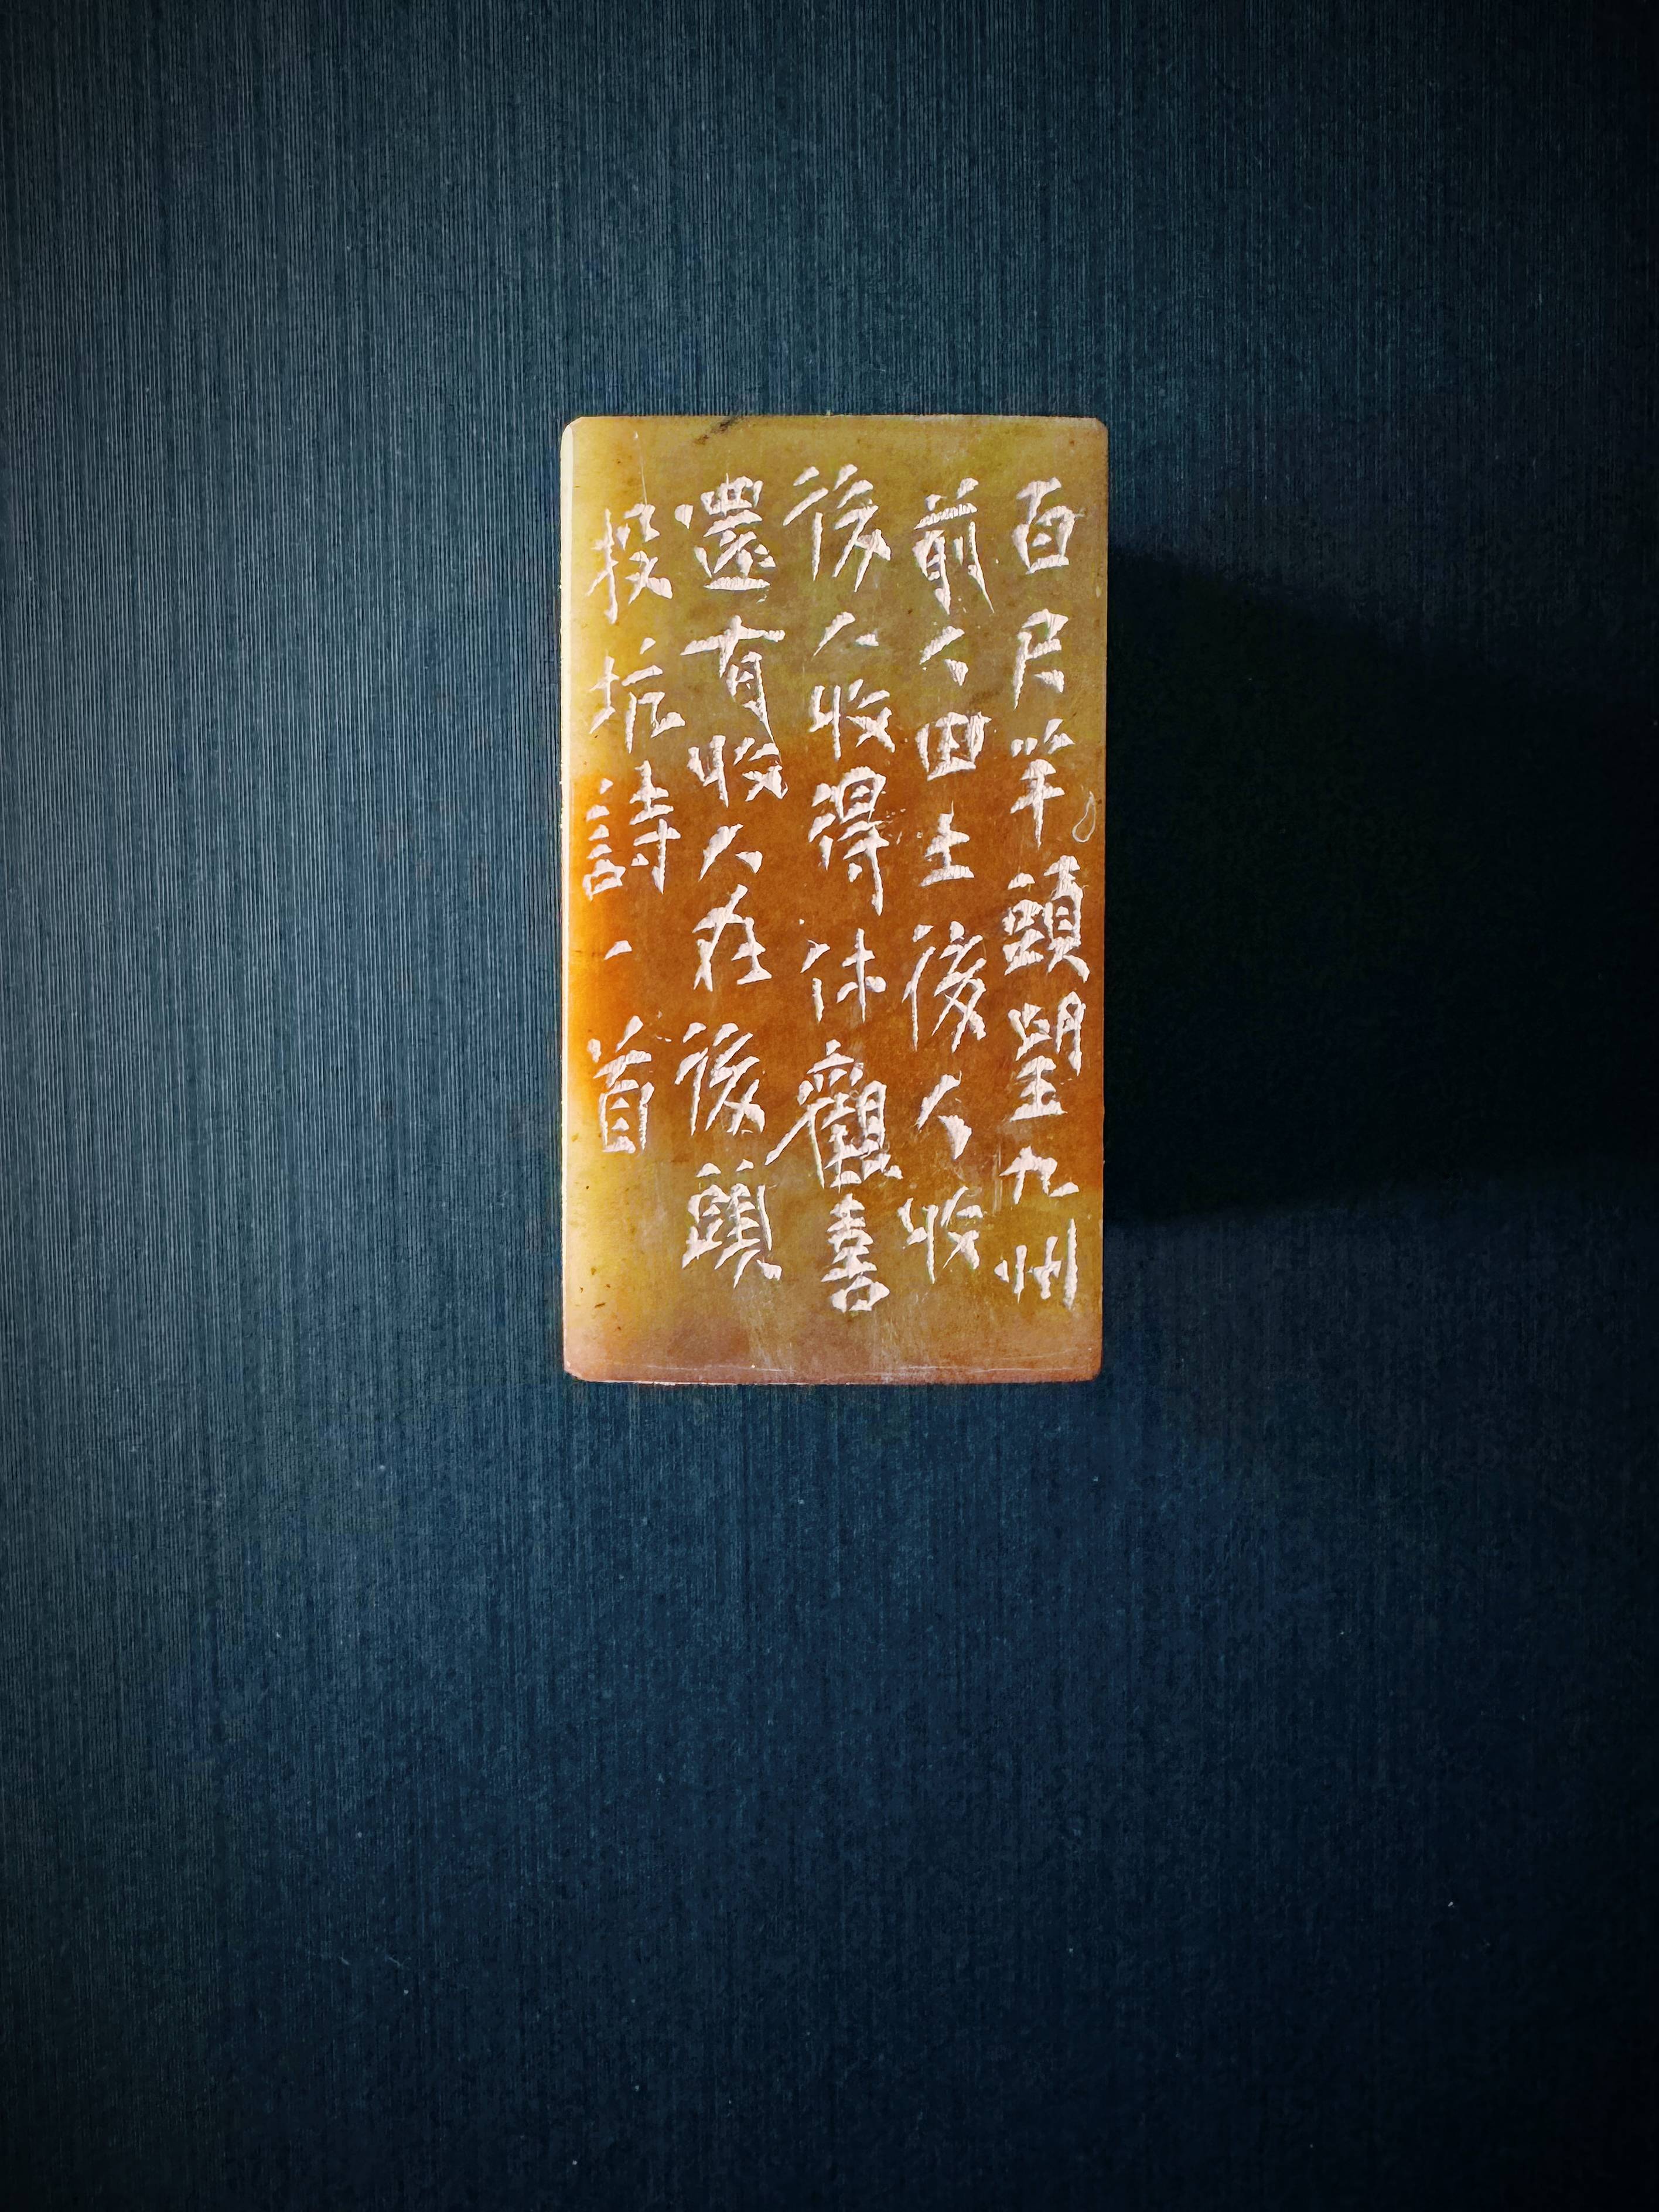 百尺竿頭望九州
前人田土後人收
後人收得休觀喜
還有收人在後頭
投坑詩一首